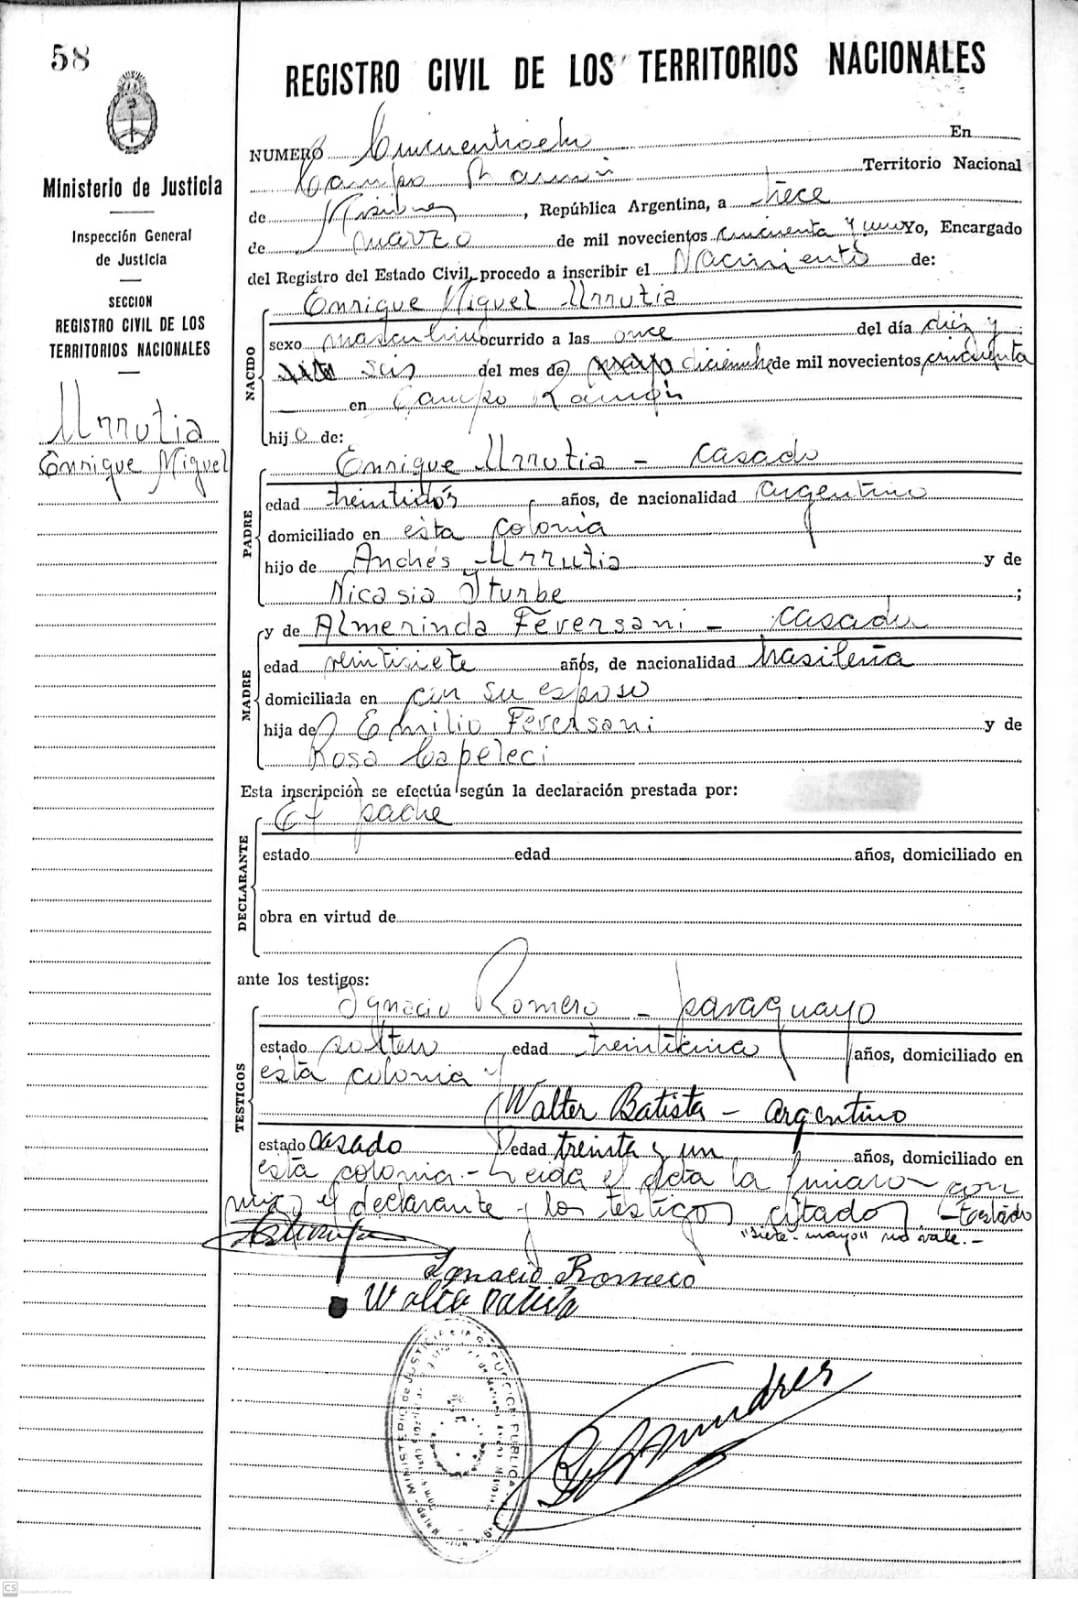 58
Ministerio de Justicia
Inspección General
de Justicia
SECCION
REGISTRO CIVIL DE LOS
TERRITORIOS NACIONALES
Urrutia
Enrique Miguel
REGISTRO CIVIL DE LOS TERRITORIOS NACIONALES
NUMERO Cincuentiocho En
Campo Ramón Territorio Nacional
de Misiones, República Argentina, a trece
de marzo de mil novecientos cincuenta y uno Yo, Encargado
del Registro del Estado Civil, procedo a inscribir el Nacimiento de:
NACIDO
Enrique Miguel Urrutia
sexo masculino ocurrido a las once del día diez y
siete seis del mes de mayo diciembre de mil novecientos cincuenta
en Campo Ramón
hijo de:
PADRE
Enrique Urrutia - casado
edad treintidós años, de nacionalidad argentino
domiciliado en esta colonia
hijo de Andrés Urrutia y de
Nicasia Iturbe ;
MADRE
y de Almerinda Feversani - casada
edad veintisiete años, de nacionalidad brasileña
domiciliada en con su esposo
hija de Emilio Feversani y de
Rosa Capeleci
Esta inscripción se efectúa según la declaración prestada por:
DECLARANTE
El padre
estado edad años, domiciliado en
obra en virtud de
ante los testigos:
TESTIGOS
Ignacio Romero - paraguayo
estado soltero edad treinticinco años, domiciliado en
esta colonia y
Walter Batista - argentino
estado casado edad treinta y un años, domiciliado en
esta colonia.- Leída el acta la firmaron con
migo el declarante y los testigos citados.- Testado
"siete- mayo" no vale.-
Ignacio Romero
Walter Batista
MINISTERIO DE JUSTICIA E INSTRUCCION PUBLICA